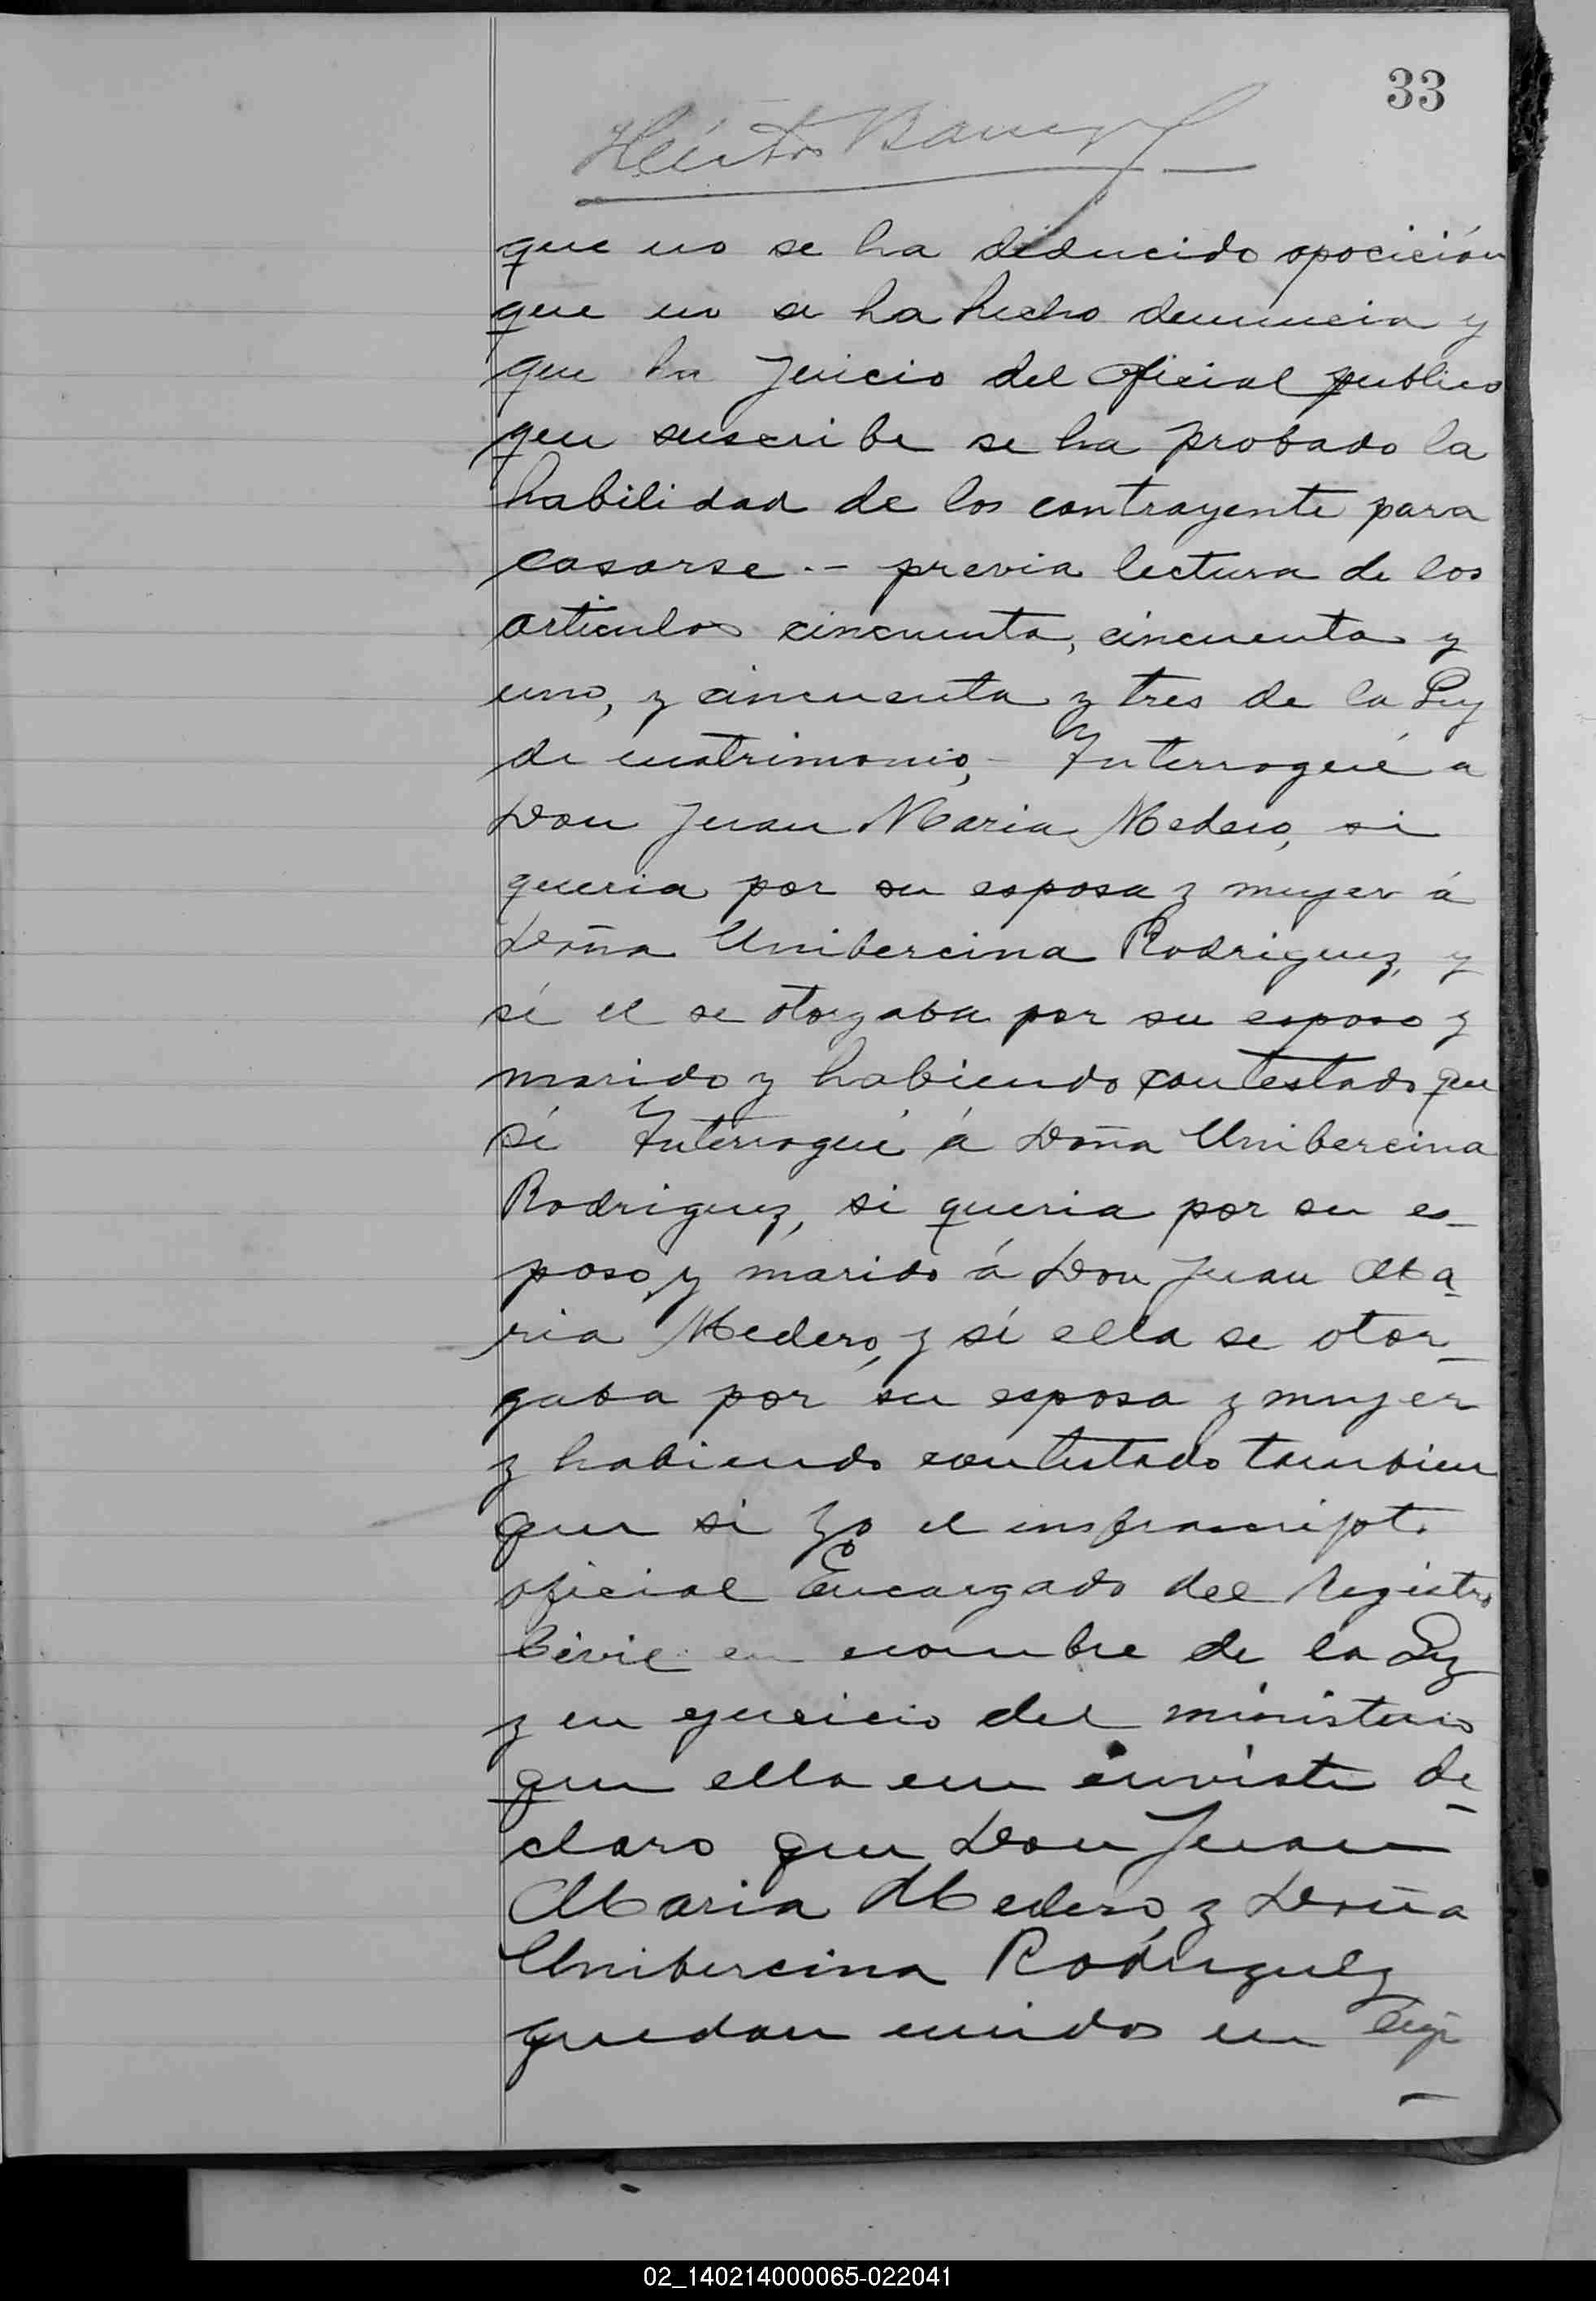 33
Héctor
que no se ha deducido opocición
que no se ha hecho denuncia y
que ha Juicio del oficial publico
que suscribe se ha probado la
habilidad de los contrayente para
casarse.- previa lectura de los
articulos cincuenta, cincuenta y
uno, y cincuenta y tres de la Ley
de matrimonio,- Interrogué a
Don Juan Maria Medero, si
queria por su esposa y mujer á
Doña Unibercina Rodriguez, y
sí el se otorgaba por su esposo y
marido y habiendo contestado que
sí Interrogué á Doña Unibercina
Rodriguez, si queria por su es-
poso, y marido á Don Juan Ma-
ria Medero, y sí ella se otor-
gaba por su esposa y mujer
y habiendo contestado tambien
que si yo el infrascripto
oficial Encargado del Registro
Civil en nombre de la Ley
y en ejercicio del ministerio
que ella me inviste de-
claro que Don Juan
Maria Medero, y Doña
Unibercina Rodriguez
quedan unidos en
02_140214000065-022041